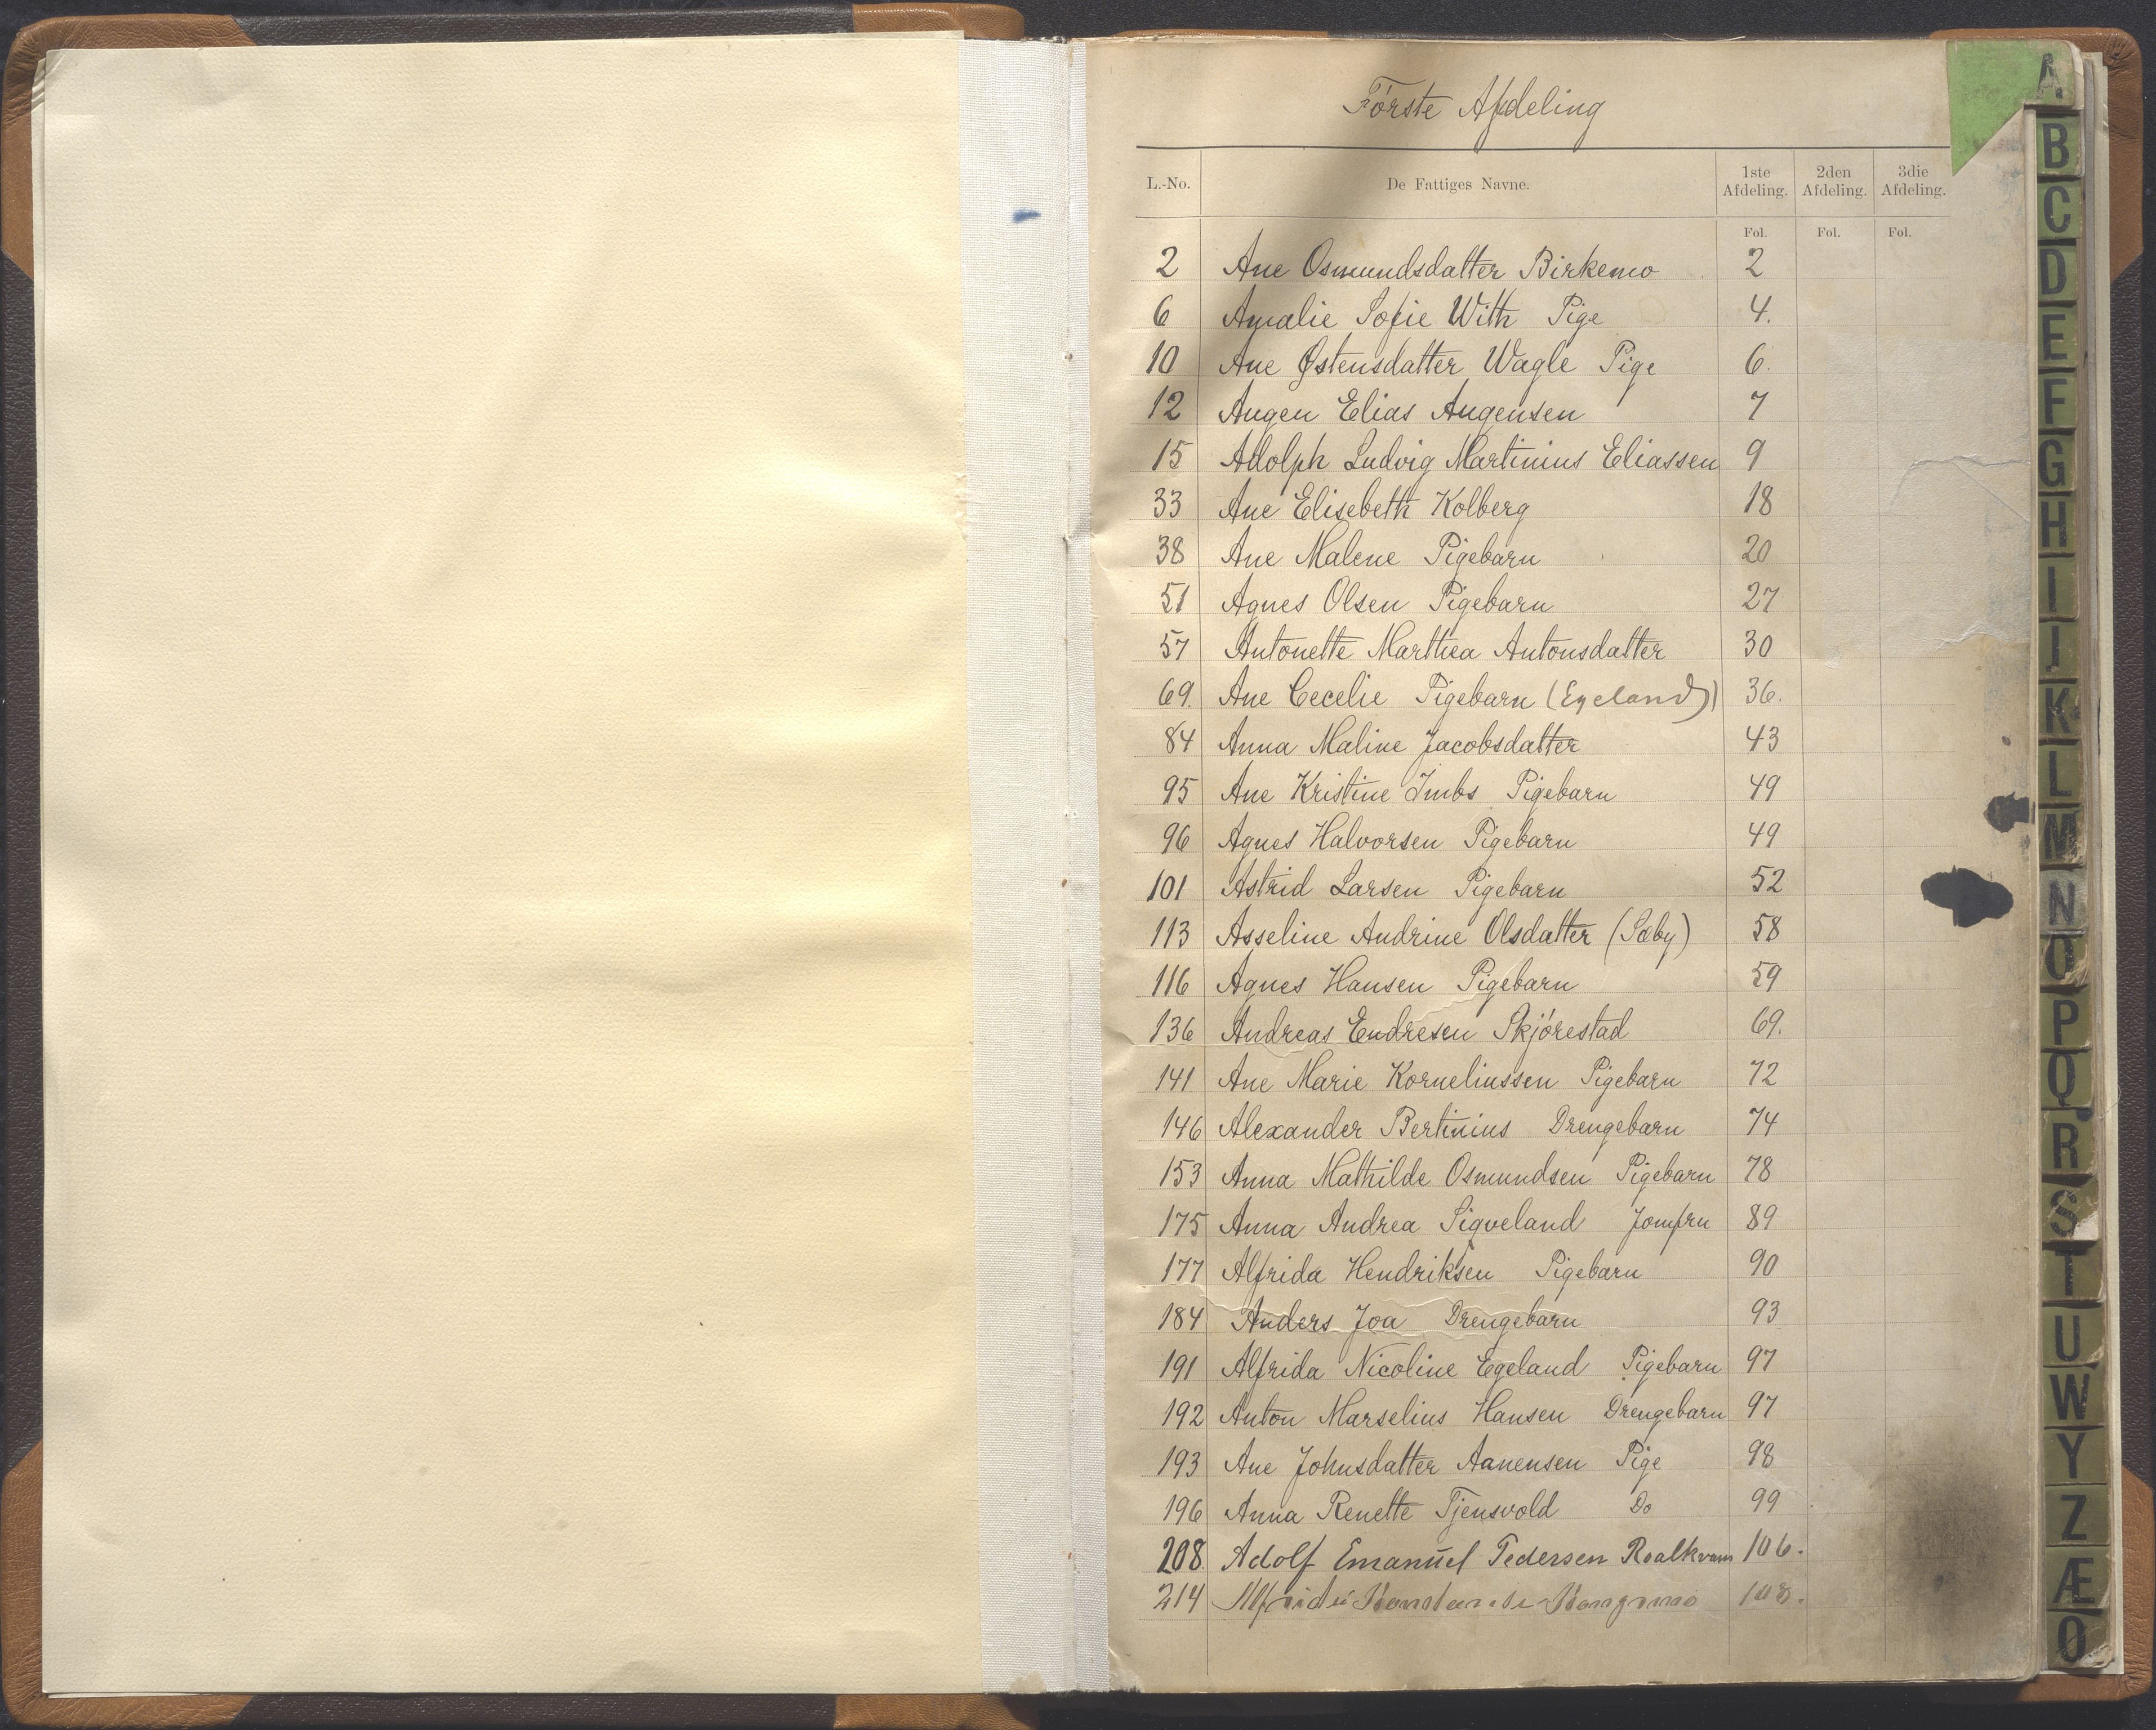 Første Afdeling
L.-No. De Fattiges Navne. 1ste Afdeling. 2den Afdeling. 3die Afdeling.
Fol. Fol. Fol.
2 Ane Osmundsdatter Birkemo 2
6 Amalie Sofie With Pige 4.
10 Ane Østensdatter Wagle Pige 6.
12 Augen Elias Augensen 7
15 Adolph Ludvig Martinius Eliassen 9
33 Ane Elisebeth Kolberg 18
38 Ane Malene Pigebarn 20
51 Agnes Olsen Pigebarn 27
57 Antonette Marthea Antonsdatter 30
69. Ane Cecelie Pigebarn (Egeland) 36.
84 Anna Maline Jacobsdatter 43
95 Ane Kristine Imbs Pigebarn 49
96 Agnes Halvorsen Pigebarn 49
101 Astrid Larsen Pigebarn 52
113 Asseline Andrine Olsdatter (Sæby) 58
116 Agnes Hansen Pigebarn 59
136 Andreas Endresen Skjørestad 69.
141 Ane Marie Korneliussen Pigebarn 72
146 Alexander Bertinius Drengebarn 74
153 Anna Mathilde Osmundsen Pigebarn 78
175 Anna Andrea Sigveland Jomfru 89
177 Alfrida Hendriksen Pigebarn 90
184 Anders Joa Drengebarn 93
191 Alfrida Nicoline Egeland Pigebarn 97
192 Anton Marselius Hansen Drengebarn 97
193 Ane Johnsdatter Aanensen Pige 98
196 Anna Renette Tjensvold Do 99
208. Adolf Emanuel Pedersen Roalkvam 106.
214 108.
A
B
C
D
E
F
G
H
I
J
K
L
M
N
O
P
Q
R
S
T
U
W
Y
Z
Æ
Ø